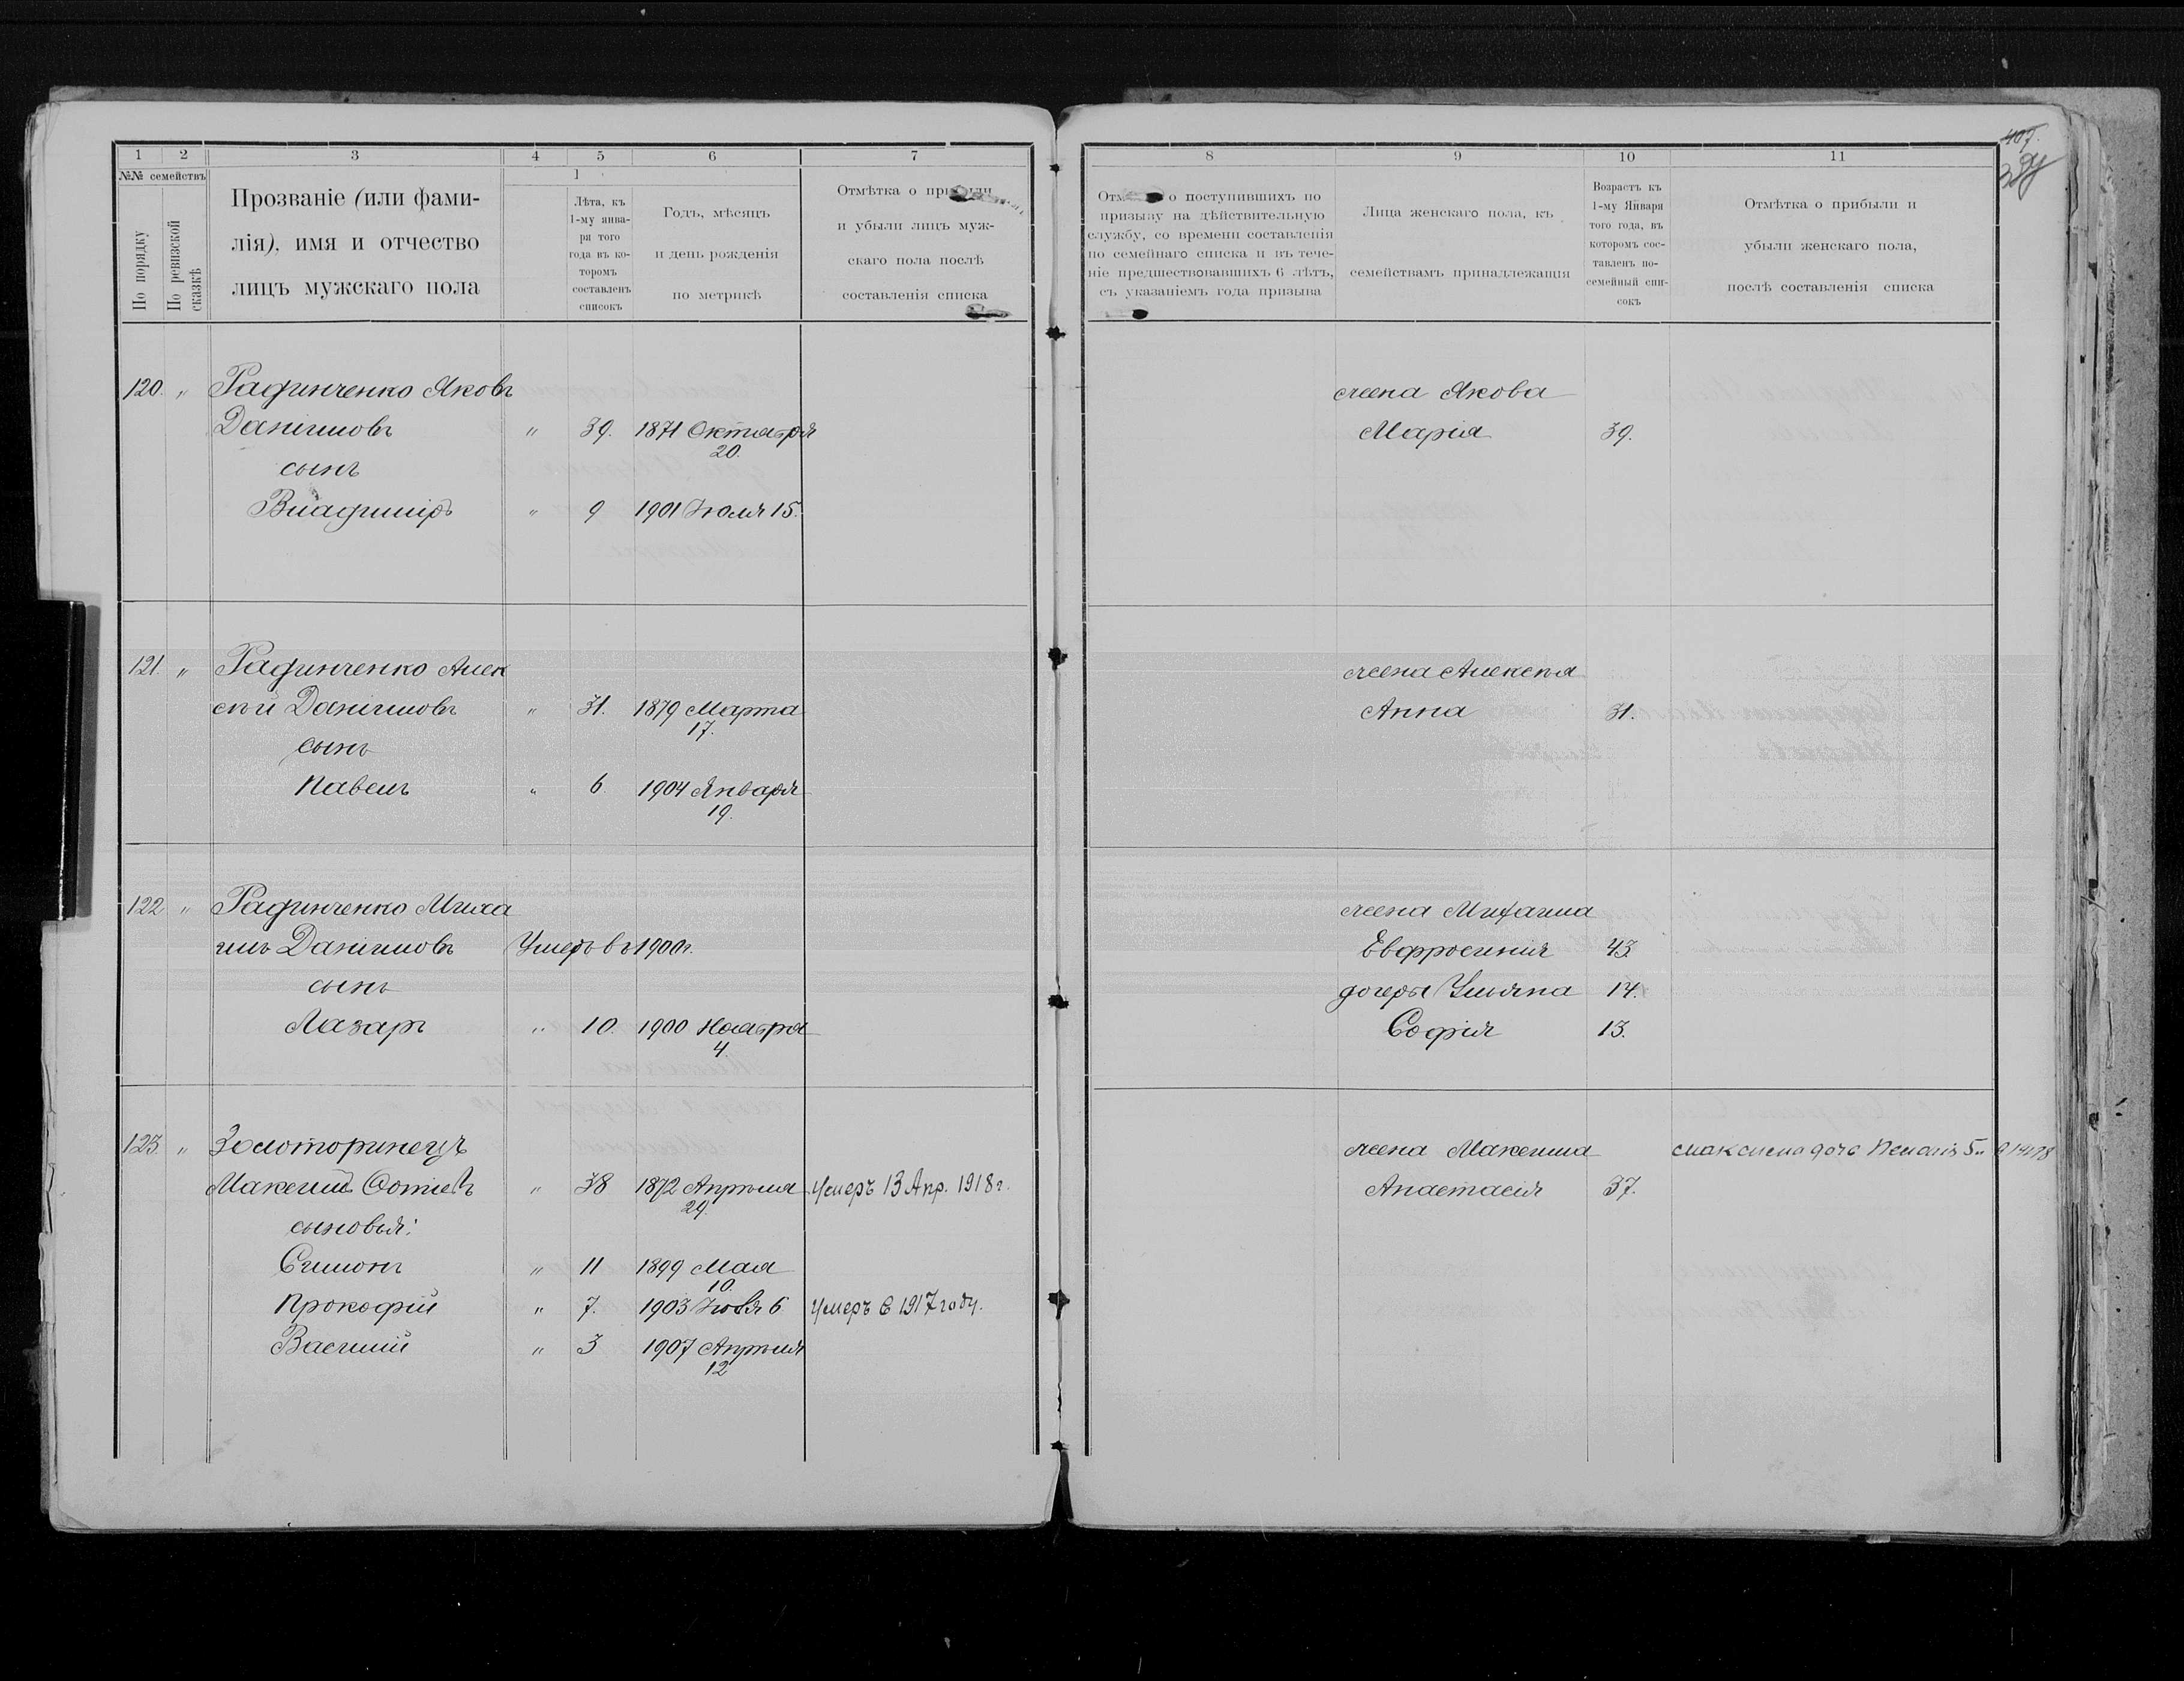 1 2 3 4 5 6 7
№№ семействъ
По порядку
По ревизской сказкѣ
Прозваніе (или фами-
лія), имя и отчество
лицъ мужскаго пола
1
Лѣта, къ
1-му янва-
ря того
года въ ко-
торомъ
составленъ
списокъ
Годъ, мѣсяцъ
и день рожденія
по метрикѣ
Отмѣтка о
и убыли лицъ муж-
скаго пола послѣ
составленія списка
120. „ Радинченко Яковъ
Даніиловъ „ 39. 1871 Октября
20.
сынъ
Владиміръ „ 9 1901 Іюля 15.
121. „ Радинченко Алек
сѣй Даніиловъ „ 31. 1879 Марта
17.
сынъ
Павелъ „ 6 1904 Января
19.
122 „ Радинченко Миха
илъ Даніиловъ Умеръ въ 1900г.
сынъ
Лазарь „ 10. 1900 Ноября
4
123. „ Золоторинецъ
Максимъ „ 38 1872 Апрѣля Умеръ 13 Апр. 1918 г.
29.
сыновья:
Симонъ „ 11 1899 Мая
10.
Прокофій „ 7. 1903 6 Умеръ в 1917 году.
Василій „ 3 1907 Апрѣля
12
407.
8 9 10 11
о поступившихъ по
призыву на дѣйствительную
службу, со времени составленія
по семейнаго списка и въ тече-
ніе предшествовавшихъ 6 лѣтъ,
съ указаніемъ года призыва
Лица женскаго пола, къ
семействамъ принадлежащія
Возрастъ къ
1-му Января
того года, въ
которомъ сос-
тавленъ по-
семейный спи-
сокъ
Отмѣтка о прибыли и
убыли женскаго пола,
послѣ составленія списка
жена Якова
Марія 39.
жена Алексѣя
Анна 31.
жена Михаила
Евфросинія 43
дочери Ульяна 14.
Софія 13.
жена Максима
Анастасія 37.